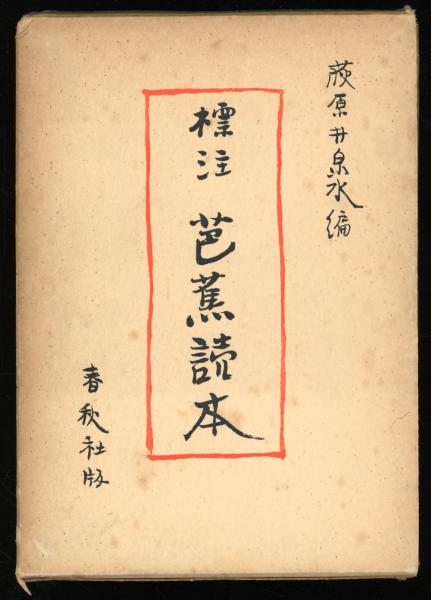 荻原井泉水編
標注 芭蕉読本
春秋社版